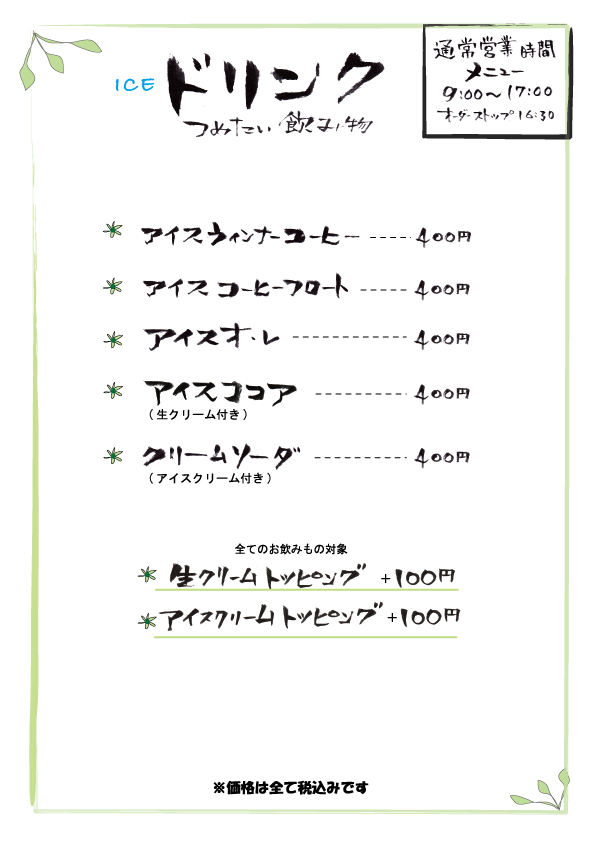 通常営業時間
メニュー
9:00〜17:00
オーダーストップ16:30
ICE ドリンク
つめたい飲み物
アイスウィンナーコーヒー ----- 400円
アイスコーヒーフロート ----- 400円
アイスオ・レ ------------- 400円
アイスココア ---------- 400円
（生クリーム付き）
クリームソーダ ---------- 400円
（アイスクリーム付き）
全てのお飲みもの対象
生クリームトッピング +100円
アイスクリームトッピング +100円
※価格は全て税込みです